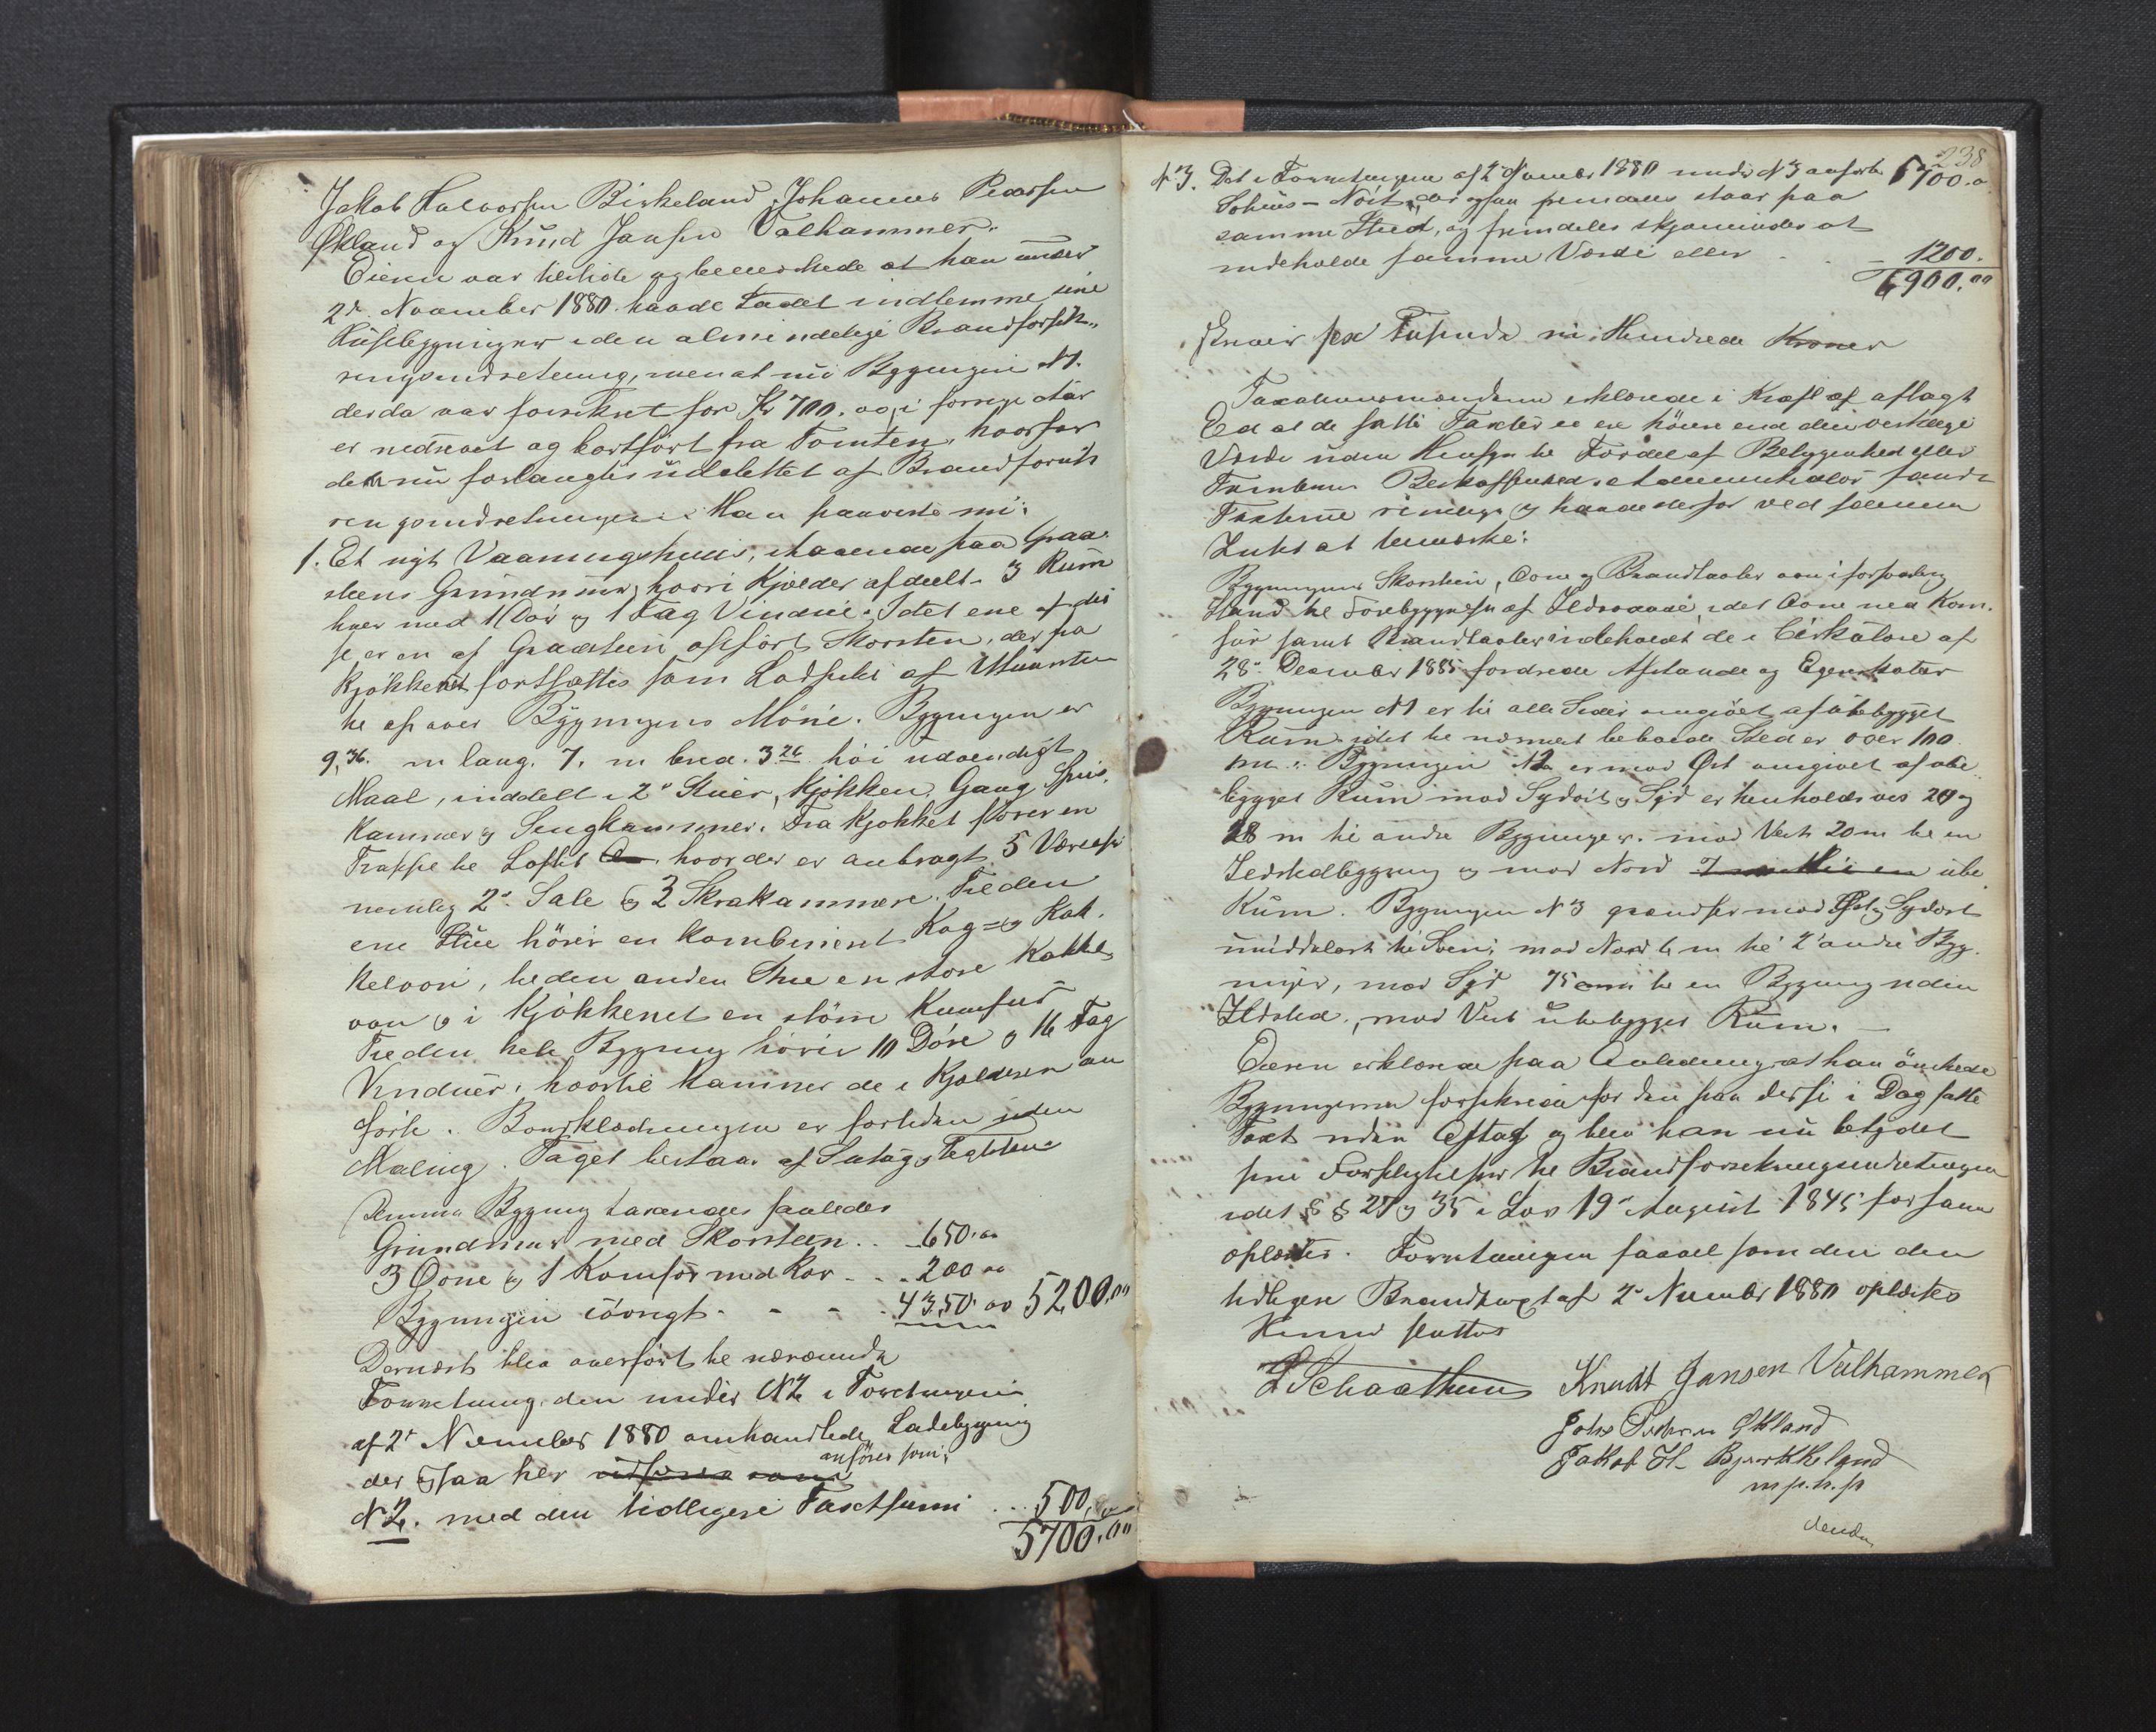 Jakob Halvorsen Birkeland, Johannes Pedersen
Økland og Knud Jansen Valhammer.
Eieren var tilstede og bemerkede at han under
2den November 1880 havde ladet indlemme sine
Husebygninger i den almindelige Brandforsik-
ringsindretning, men at nu Bygningen N1.
der da var forsikret for Kr 700. og i forrige Aar
er nedrevet og bortført fra Tomten, hvorfor
den nu forlanges udslettet af Brandforsik
ringsindretningen. Han paaviste nu:
1. Et nyt Vaaningshuus, staaende paa Graa-
steens Grundmuur, hvori Kjelder afdeelt i 3 Rum
hver med 1 Dør og 1 Fag Vindue. I det ene af dis
se er en af Graasteen opført Skorsten, der fra
Kjøkkenet fortsættes som Ladpibe af Muursten
til op over Bygningens Møne. Bygningen er
9,36. m lang. 7. m bred. 3.26 høi udvendigt
Maal, inddelt i 2de Stuer, Kjøkken, Gang, Spis-
kammer og Sengkammer. Fra Kjøkket fører en
Trappe til Loftet hvor der er anbragt 5 Værelser
nemlig 2de Sale og 3 Skraakammere. Til den
ene Stue hører en kombineret Kog= og Kak-
kelovn, til den anden Stue en større Kakkel
ovn og i Kjøkkenet en større Kumfur
Til den hele Bygning hører 10 Døre og 16 Fag
Vinduer, hvortil kommer de i Kjelderen an
førte. Bordklædningen er fortiden uden
Maling. Taget bestaar af Sutag og Teglsten
Denne Bygning taxeredes saaledes
Grundmuur med Skorsteen .. 650.00
3 Ovne og 1 Komfør med Rør . . . 200 00
Bygningen iøvrigt - - - . 4350.00 5200.00
Dernæst blev overført til nærværende
Forretning den under N2 i Forretningen
af 2den November 1880 omhandlede Ladebygning
der ogsaa her anføres som:
N2. med den tidligere Taxtsum ... 500,00
5700.00
238
N3. Det i Forretningen af 2den November 1880 under N3 anførte 5700.00
Sohuus - Nøst, der ogsaa fremdeles staar paa
samme Sted, og fremdeles skjønnedes at
indeholde samme Værdi eller - . - 1200.
6900.00
Skriver sex Tusinde ni Hundrede Kroner
Taxationsmændene erklærede i Kraft af aflagt
Ed at de satte Taxter ei ere høiere end den virkelige
Værdi uden Hensyn til Fordel af Beliggenhed eller
Tomtens Beskaffenhed. Administrator fandt
Taxterne rimelige og havde derfor ved samme
Intet at bemærke.
Bygningens Skorsteen, Ovne og Brandtavler ere i forsvarlig
Stand til Forebyggelse af Ildsvaade, idet Ovne med Kom-
før samt Brandtavler indeholdt de i Cirkulære af
28de December 1885 fordrede Afstande og Egenskaber
Bygningen N1 er til alle Sider omgivet af ubebygget
Rum, idet til nærmest beboede Sted er over 100
m. Bygningen N2 er mod Øst omgivet af ube
bygget Rum mod Sydøst og Syd er henholdsvis 20 og
28 m til andre Bygninger. mod Vest 20 m til en
Ildstedbygning og mod Nord ube
Rum. Bygningen N3 grændser mod Øst og Sydost
umiddelbart til Søen, mod Nord 6 m til 2 andre Byg-
ninger, mod Syd 75 cm til en Bygning uden
Ildsted, mod Vest ubebygget Rum. -
Eieren erklærede paa Anledning at han ønskede
Bygningerne forsikrede for den paa disse i Dag satte
Taxt uden Aftag og blev han nu betydet
sine Forpligtelser til Brandforsikringsindretningen
idet § § 27 og 35 i Lov 19de August 1845 for ham
oplæstes. Forretningen saavel som den den
tidligere Brandtaxt af 2den November 1880 oplæstes
Hermed sluttet
L Schaathun Knudt Jansen Valhammer
Johs Pedersen Økland
Jakob H. Bjørkkeland
m. p. h. p